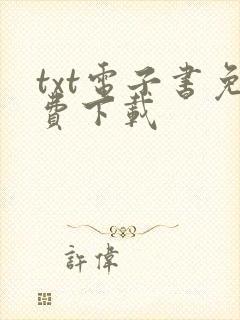 txt電子書免
費下載
許偉